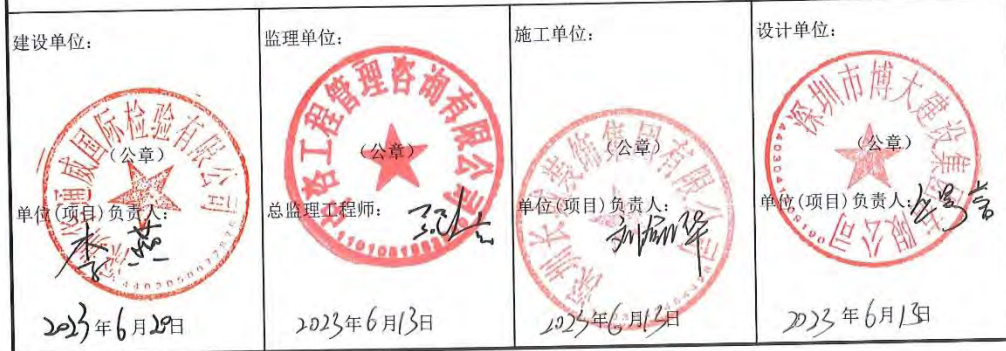 建设单位：
通威国际检验有限公司
（公章）
单位(项目)负责人：
2023年6月20日
监理单位：
咨工程管理咨询有限公司
（公章）
总监理工程师：
2023年6月13日
施工单位：
深圳长城装饰集团有限公司
（公章）
单位(项目)负责人：
2023年6月13日
设计单位：
深圳市博大建设集团有限公司
（公章）
单位(项目)负责人：
2023年6月13日